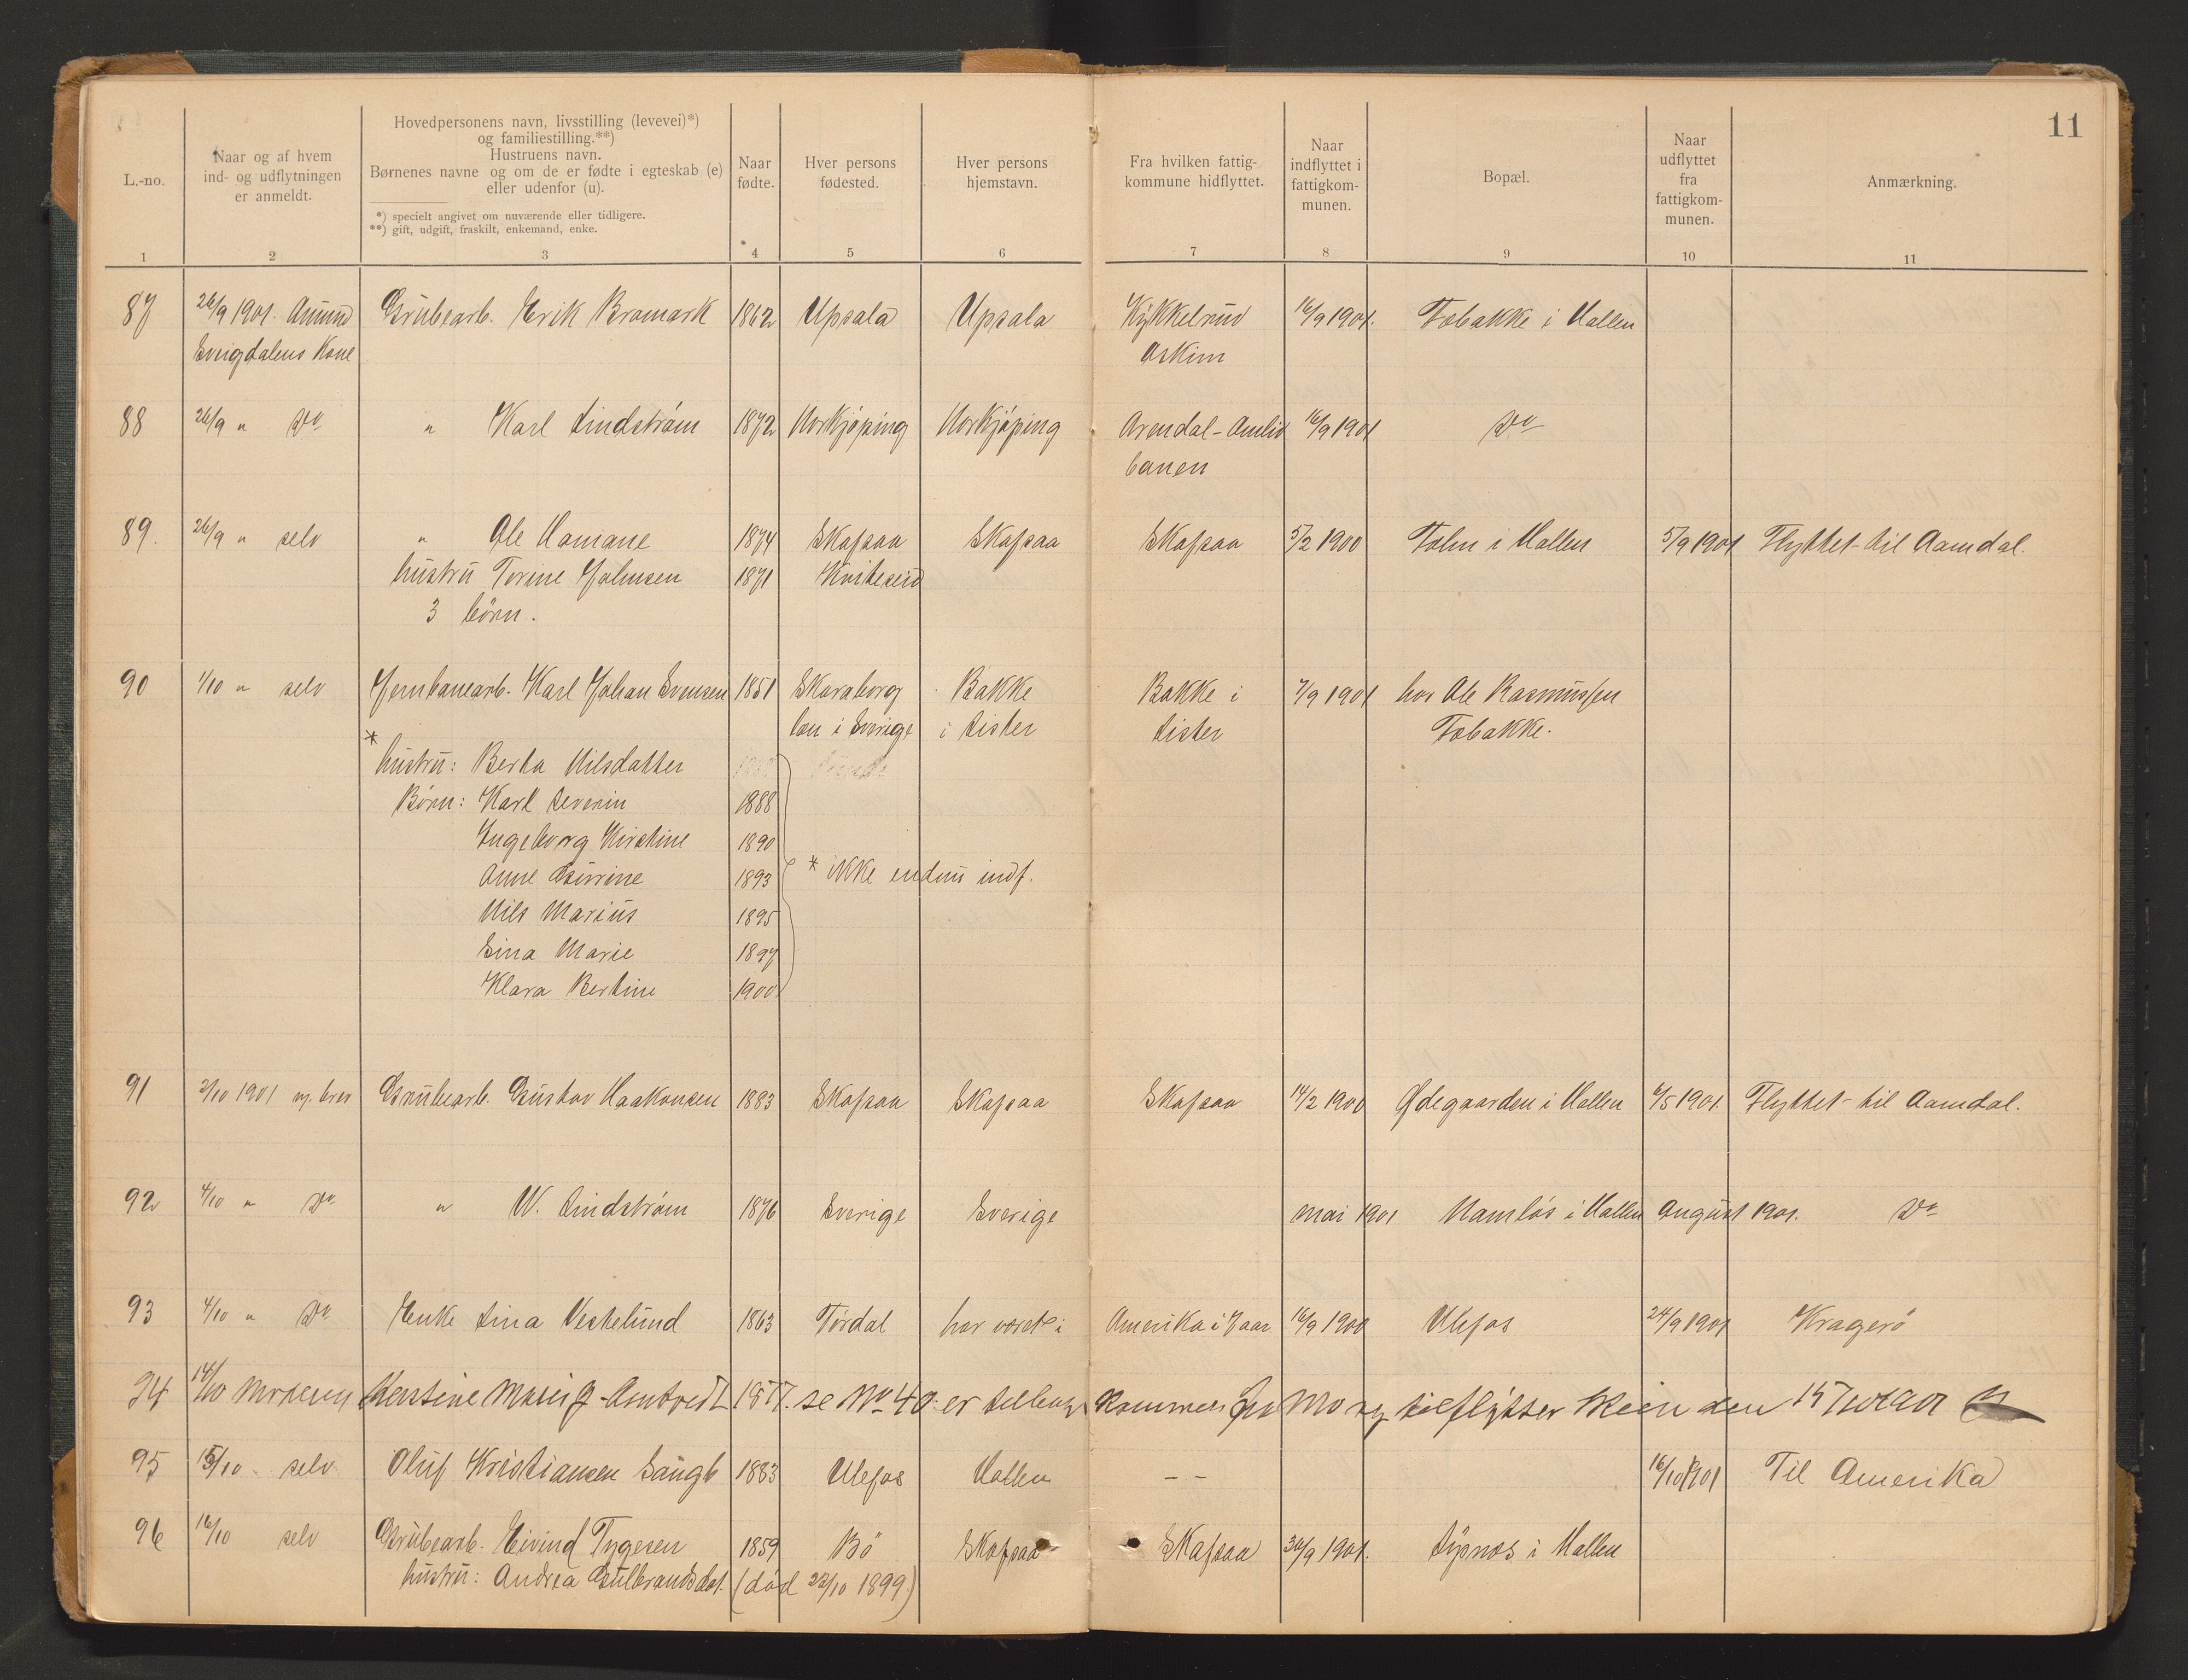 11
L.-no.
Naar og af hvem
ind- og udflytningen
er anmeldt.
Hovedpersonens navn, livsstilling (levevei)*)
og familiestilling.**)
Hustruens navn.
Børnenes navne og om de er fødte i egteskab (e)
eller udenfor (u).
*) specielt angivet om nuværende eller tidligere.
**) gift, udgift, fraskilt, enkemand, enke.
Naar
fødte.
Hver persons
fødested.
Hver persons
hjemstavn.
Fra hvilken fattig-
kommune hidflyttet.
Naar
indflyttet i
fattigkom-
munen.
Bopæl.
Naar
udflyttet
fra
fattigkom-
munen.
Anmærkning.
1 2 3 4 5 6 7 8 9 10 11
87 26/9 1901. Amund Grubearb. Erik Bromark 1862 Upsala Upsala Kykkelrud 16/9 1901. Tobakke i Hollen
Sveigdalens Kone Askim
88 26/9 " Do " Karl Lindström 1872 Norkjöping Norkjöping Arendal-Amlid 16/9 1901 Do
banen
89. 26/9 " selv " Ole Momane 1874 Skafsaa Skafsaa Skafsaa 5/2 1900 Tolin i Hollen 5/9 1901 Flyttet til Aamdal.
hustru Torine Johnsen 1871 Kviteseid
3 börn.
90 1/10 " selv Jernbanearb. Karl Johan Svensen 1851 Skaraborg Bakke Bakke i 7/9 1901 hos Ole Rasmussen
len i Sverige i Lister Lister Tobakke.
*
hustru: Berta Nilsdatter
Börn: Karl Severin 1888
Ingeborg Kirstine 1890
Anne Gurine 1893 * ikke endnu indf.
Nils Marius 1895
Sina Marie 1897
Klara Bertine 1900
91 2/10 1901 Grubearb. Gustav Haakonsen 1883 Skafsaa Skafsaa Skafsaa 14/2 1900 Ødegaarden i Hollen 6/5 1901. Flyttet til Aamdal.
92 4/10 " Do " W. Lindström 1876 Sverige Sverige mai 1901 Namlös i Hollen August 1901. Do
93 4/10 " Do Enke Lina Vestelund 1863 Tördal har været i Amerika i 7 aar 16/9 1900 Ulefos 24/9 1901 Kragerö
94 14/10 Moderen Kerstine Marie J. Amtvedt 1877. se No 40 er tilbage kommen fra Mo og tilflytter Skien den 15/10 1901
95 15/10 selv Oluf Kristiansen Saugb 1883 Ulefos Hollen - - 16/10 1901 Til Amerika
96 16/10 selv Grubearb. Eivind Tygesen 1859 Bö Skafsaa Skafsaa 30/9 1901. Lysnos i Hollen
hustru: Andrea Gulbrandsdat. (död 22/10 1899)